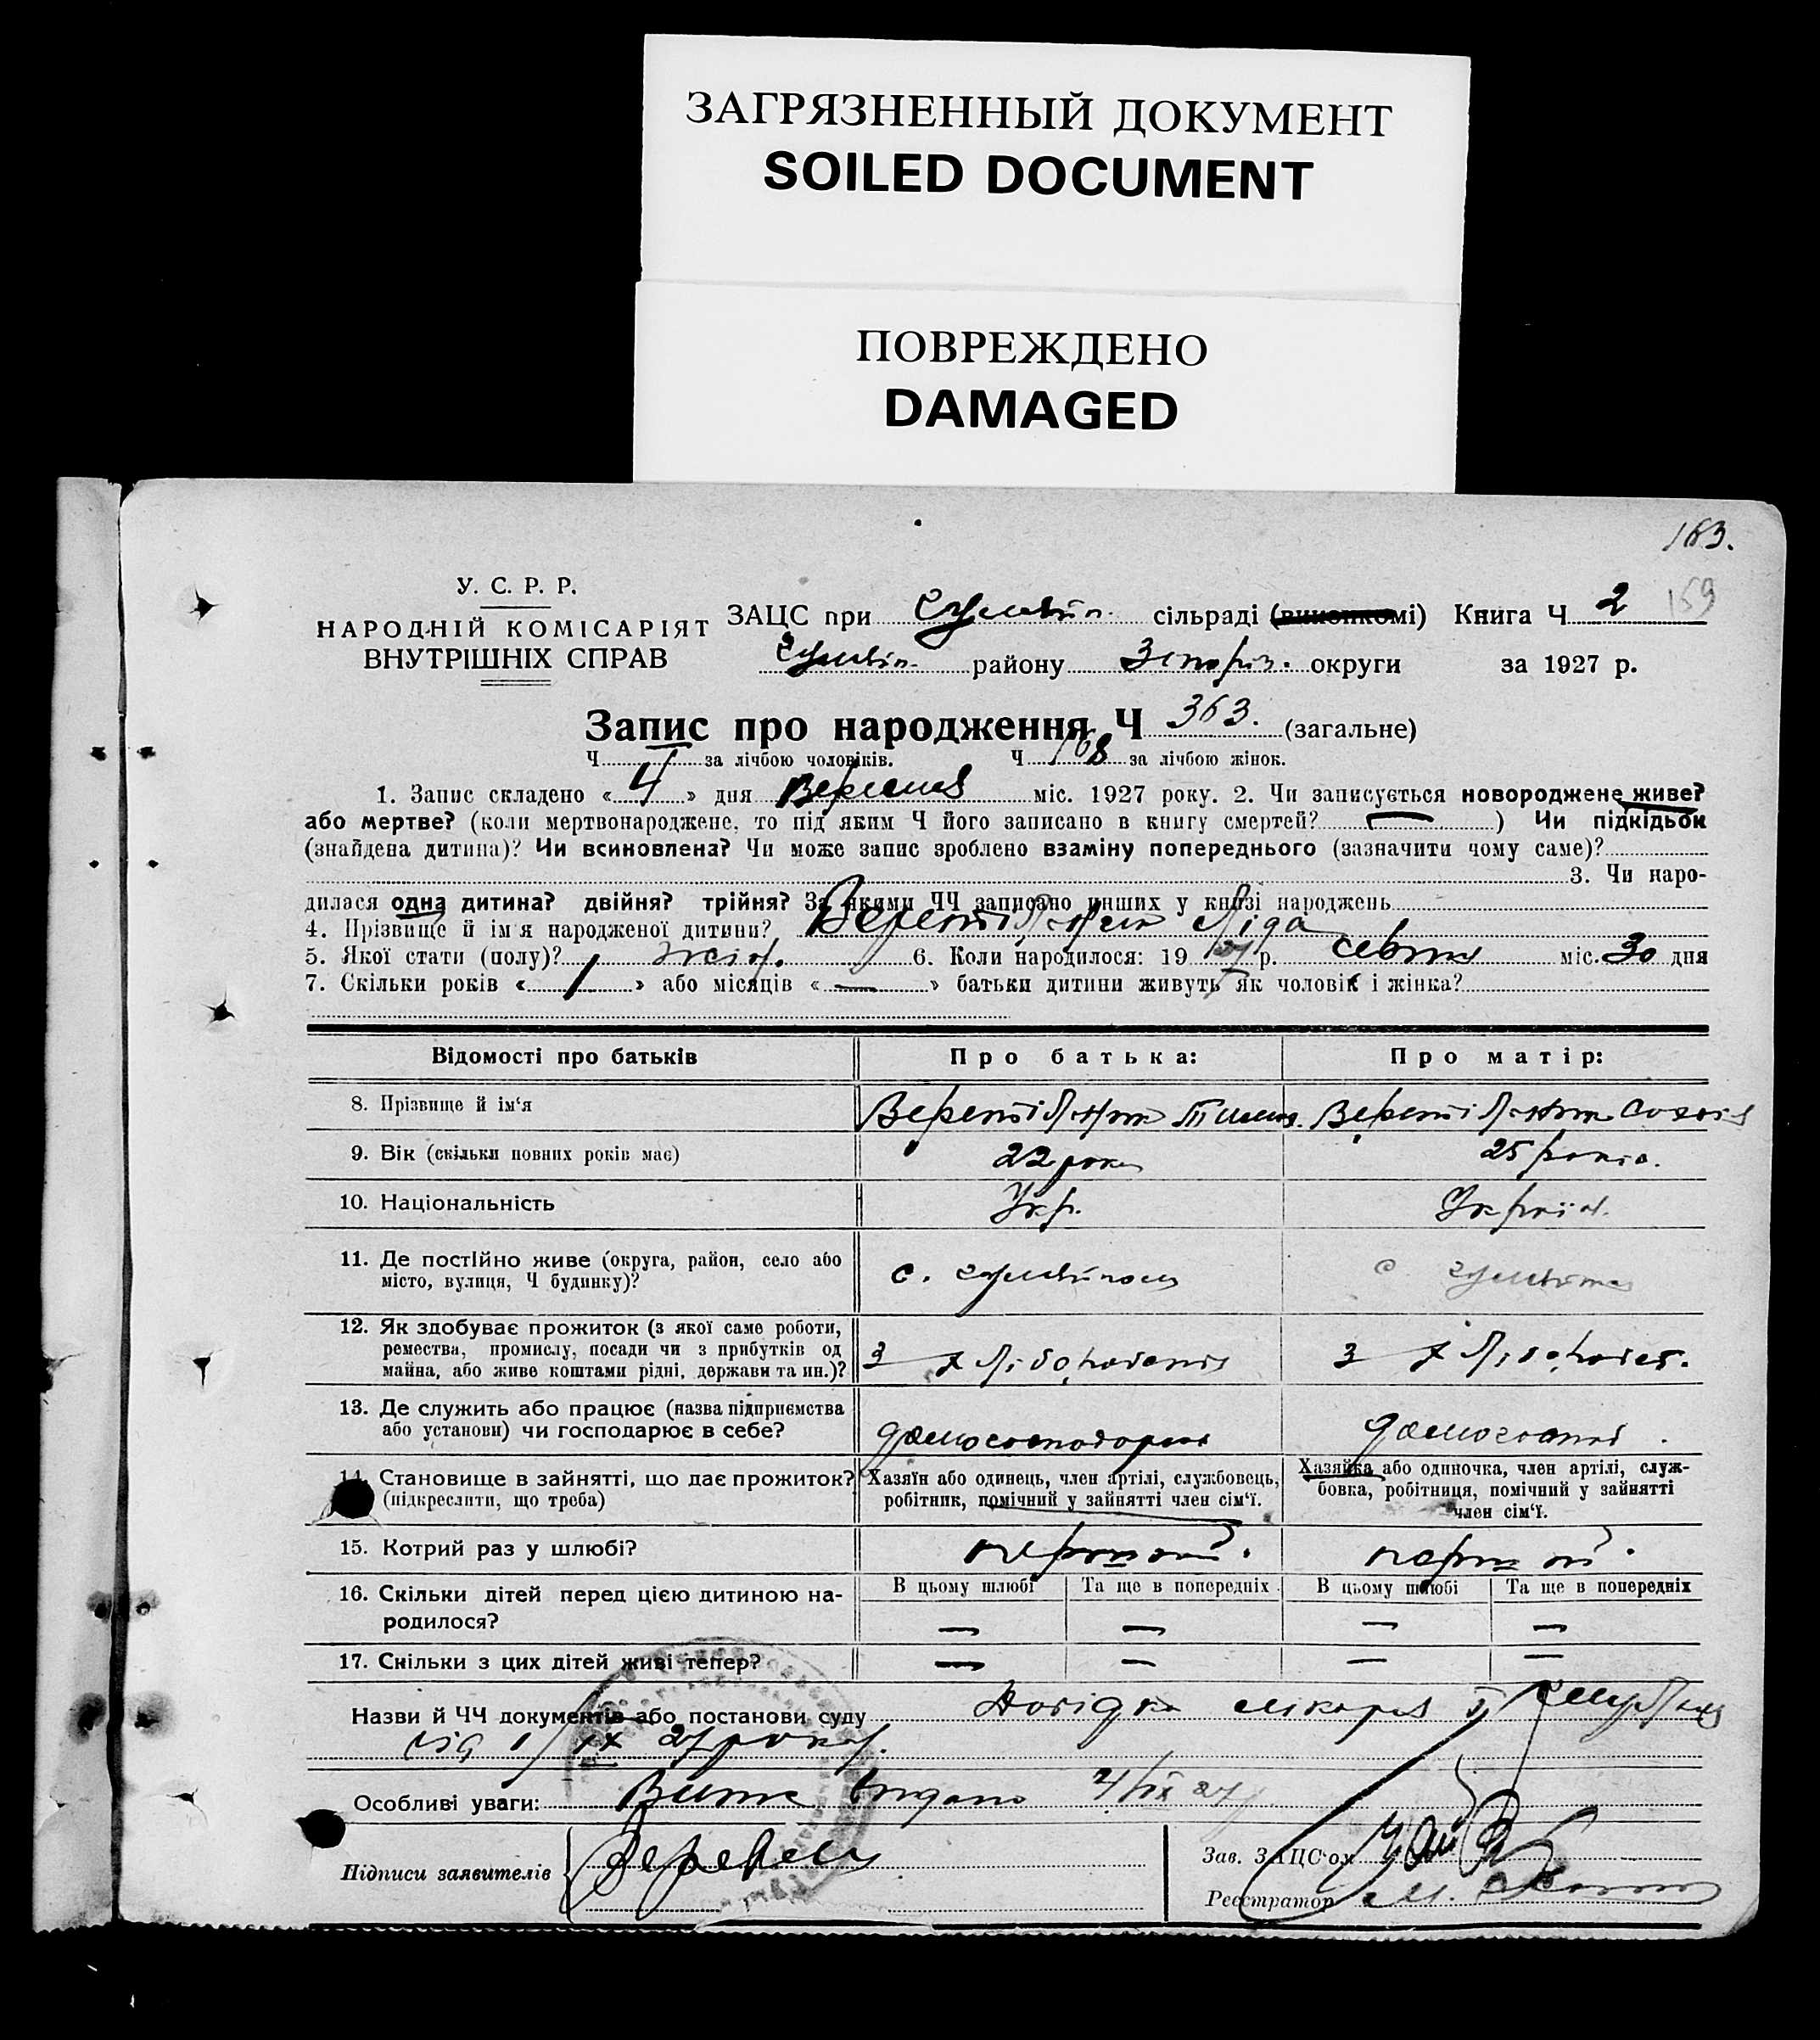 ЗАГРЯЗНЕННЫЙ ДОКУМЕНТ
SOILED DOCUMENT
ПОВРЕЖДЕНО
DAMAGED
163.
159
У. С. Р. Р.
НАРОДНІЙ КОМІСАРІЯТ
ВНУТРІШНІХ СПРАВ
ЗАЦС при сільраді (виконкомі) Книга Ч 2
району округи за 1927 р.
Запис про народження Ч 363. (загальне)
Ч за лічбою чоловіків. Ч 168 за лічбою жінок.
1. Запис складено « 4 » дня Вересня міс. 1927 року. 2. Чи записується новороджене живе?
або мертве? (коли мертвонароджене, то під яким Ч його записано в книгу смертей? — ) Чи підкідьок
(знайдена дитина)? Чи всиновлена? Чи може запис зроблено взаміну попереднього (зазначити чому саме)?
3. Чи наро-
дилася одна дитина? двійня? трійня? За якими ЧЧ записано инших у книзі народжень
4. Прізвище й ім'я народженої дитини? Ліда
5. Якої стати (полу)? жін. 6. Коли народилося: 19 27 р. міс. 30 дня
7. Скільки років « 1 » або місяців « — » батьки дитини живуть як чоловік і жінка?
Відомості про батьків
Про батька:
Про матір:
8. Прізвище й ім'я
9. Вік (скільки повних років має) 22 роки 25 років.
10. Національність Укр. Україн.
11. Де постійно живе (округа, район, село або
місто, вулиця, Ч будинку)? с. с
12. Як здобуває прожиток (з якої саме роботи,
ремества, промислу, посади чи з прибутків од
майна, або живе коштами рідні, держави та ин.)? З хліборобства З хлібороб.
13. Де служить або працює (назва підприємства
або установи) чи господарює в себе?
14. Становище в зайнятті, що дає прожиток?
(підкреслити, що треба)
Хазяїн або одинець, член артілі, службовець,
робітник, помічний у зайнятті член сім'ї.
Хазяйка або одиночка, член артілі, служ-
бовка, робітниця, помічний у зайнятті
член сім'ї.
15. Котрий раз у шлюбі? перший. перший.
16. Скільки дітей перед цією дитиною на-
родилося?
В цьому шлюбі Та ще в попередніх В цьому шлюбі Та ще в попередніх
— — — —
17. Скільки з цих дітей живі тепер? — — — —
Назви й ЧЧ документів або постанови суду Довідка лікаря
від 1/IX 27 року.
Особливі уваги: 4/IX 27
Підписи заявителів
Зав. ЗАЦС'ом
Реєстратор